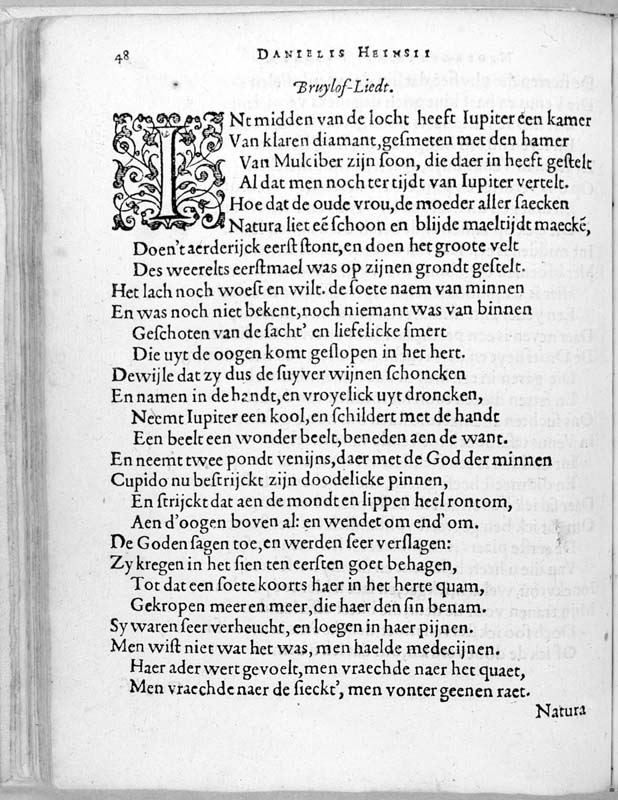 48 DANIELIS HEINSII
Bruylof-Liedt.
INt midden van de locht heeft Iupiter een kamer
Van klaren diamant, gesmeten met den hamer
Van Mulciber zijn soon, die daer in heeft gestelt
Al dat men noch ter tijdt van Iupiter vertelt.
Hoe dat de oude vrou, de moeder aller saecken
Natura liet eẽ schoon en blijde maeltijdt maeckẽ,
Doen't aerderijck eerst stont, en doen het groote velt
Des weerelts eerstmael was op zijnen grondt gestelt.
Het lach noch woest en wilt. de soete naem van minnen
En was noch niet bekent, noch niemant was van binnen
Geschoten van de sacht' en liefelicke smert
Die uyt de oogen komt geslopen in het hert.
Dewijle dat zy dus de suyver wijnen schoncken
En namen in de handt, en vroyelick uyt droncken,
Neemt Iupiter een kool, en schildert met de handt
Een beelt een wonder beelt, beneden aen de want.
En neemt twee pondt venijns, daer met de God der minnen
Cupido nu bestrijckt zijn doodelicke pinnen,
En strijckt dat aen de mondt en lippen heel rontom,
Aen d'oogen boven al: en wendet om end' om.
De Goden sagen toe, en werden seer verslagen:
Zy kregen in het sien ten eersten goet behagen,
Tot dat een soete koorts haer in het herte quam,
Gekropen meer en meer, die haer den sin benam.
Sy waren seer verheucht, en loegen in haer pijnen.
Men wist niet wat het was, men haelde medecijnen.
Haer ader wert gevoelt, men vraechde naer het quaet,
Men vraechde naer de sieckt', men vonter geenen raet.
Natura